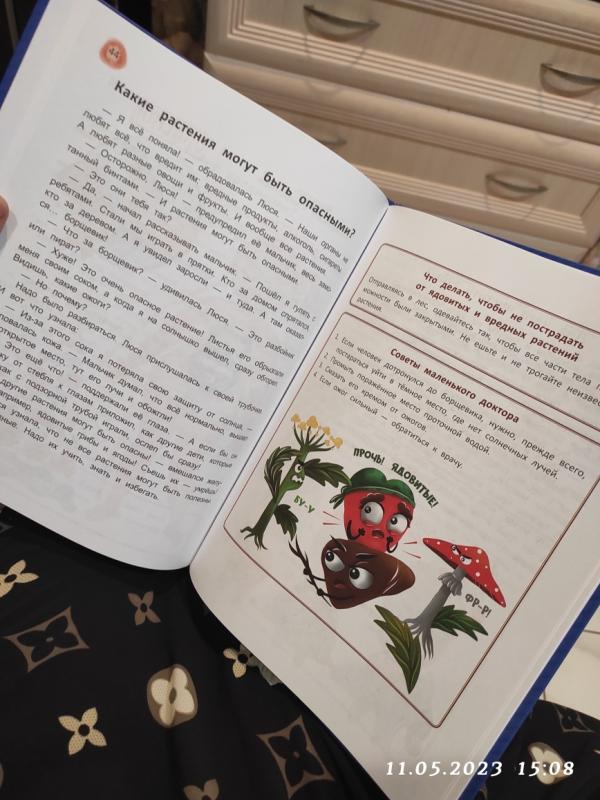 44
Какие растения могут быть опасными?
— Я всё поняла! — обрадовалась Люся. — Наши органы не
любят всё, что вредит им: вредные продукты, алкоголь, сигареты
А любят разные овощи и фрукты. И вообще все растения
— Осторожно, Люся! — предупредил её мальчик, весь замо
танный бинтами. — И растения могут быть опасными.
— Это они тебя так?
— Да, — начал рассказывать мальчик. — Пошёл я гулять с
ребятами. Стали мы играть в прятки. Кто за домом спрятался
кто за деревом. А я увидел заросли — и туда. А там оказал
ся... борщевик!
— Что за борщевик? — удивилась Люся. — Это разбойник
или пират?
— Хуже! Это очень опасное растение! Листья его обрызгали
меня своим соком, а когда я на солнышко вышел, сразу обгорел
Видишь, какие ожоги?
— Но почему?
Надо было разбираться. Люся прислушалась к своей трубочке
И вот что узнала:
— Из-за этого сока я потеряла свою защиту от солнца, —
кожа. — Мальчик думал, что всё нормально, вышел
открытое место, тут его лучи и обожгли!
— Это ещё что! — поддержали её глаза. — А если бы он
от стебля к глазам приложил, как другие дети, которые
с подзорной трубой играли, ослеп бы сразу!
другие растения могут быть опасны! — вмешался
например, ядовитые грибы и ягоды! Съешь их —
узнала, что не все растения могут быть полезны
Надо их учить, знать и избегать.
Что делать, чтобы не пострадать
от ядовитых и вредных растений
Отправляясь в лес, одевайтесь так, чтобы все части тела по
можности были закрытыми. Не ешьте и не трогайте неизвес
растения.
Советы маленького доктора
1. Если человек дотронулся до борщевика, нужно, прежде всего,
постараться уйти в тёмное место, где нет солнечных лучей.
2. Промыть поражённое место проточной водой.
3. Смазать его кремом от ожогов.
4. Если ожог сильный — обратиться к врачу.
ПРОЧЬ! ЯДОВИТЫЕ!
БУ-У
ФР-Р!
11.05.2023 15:08